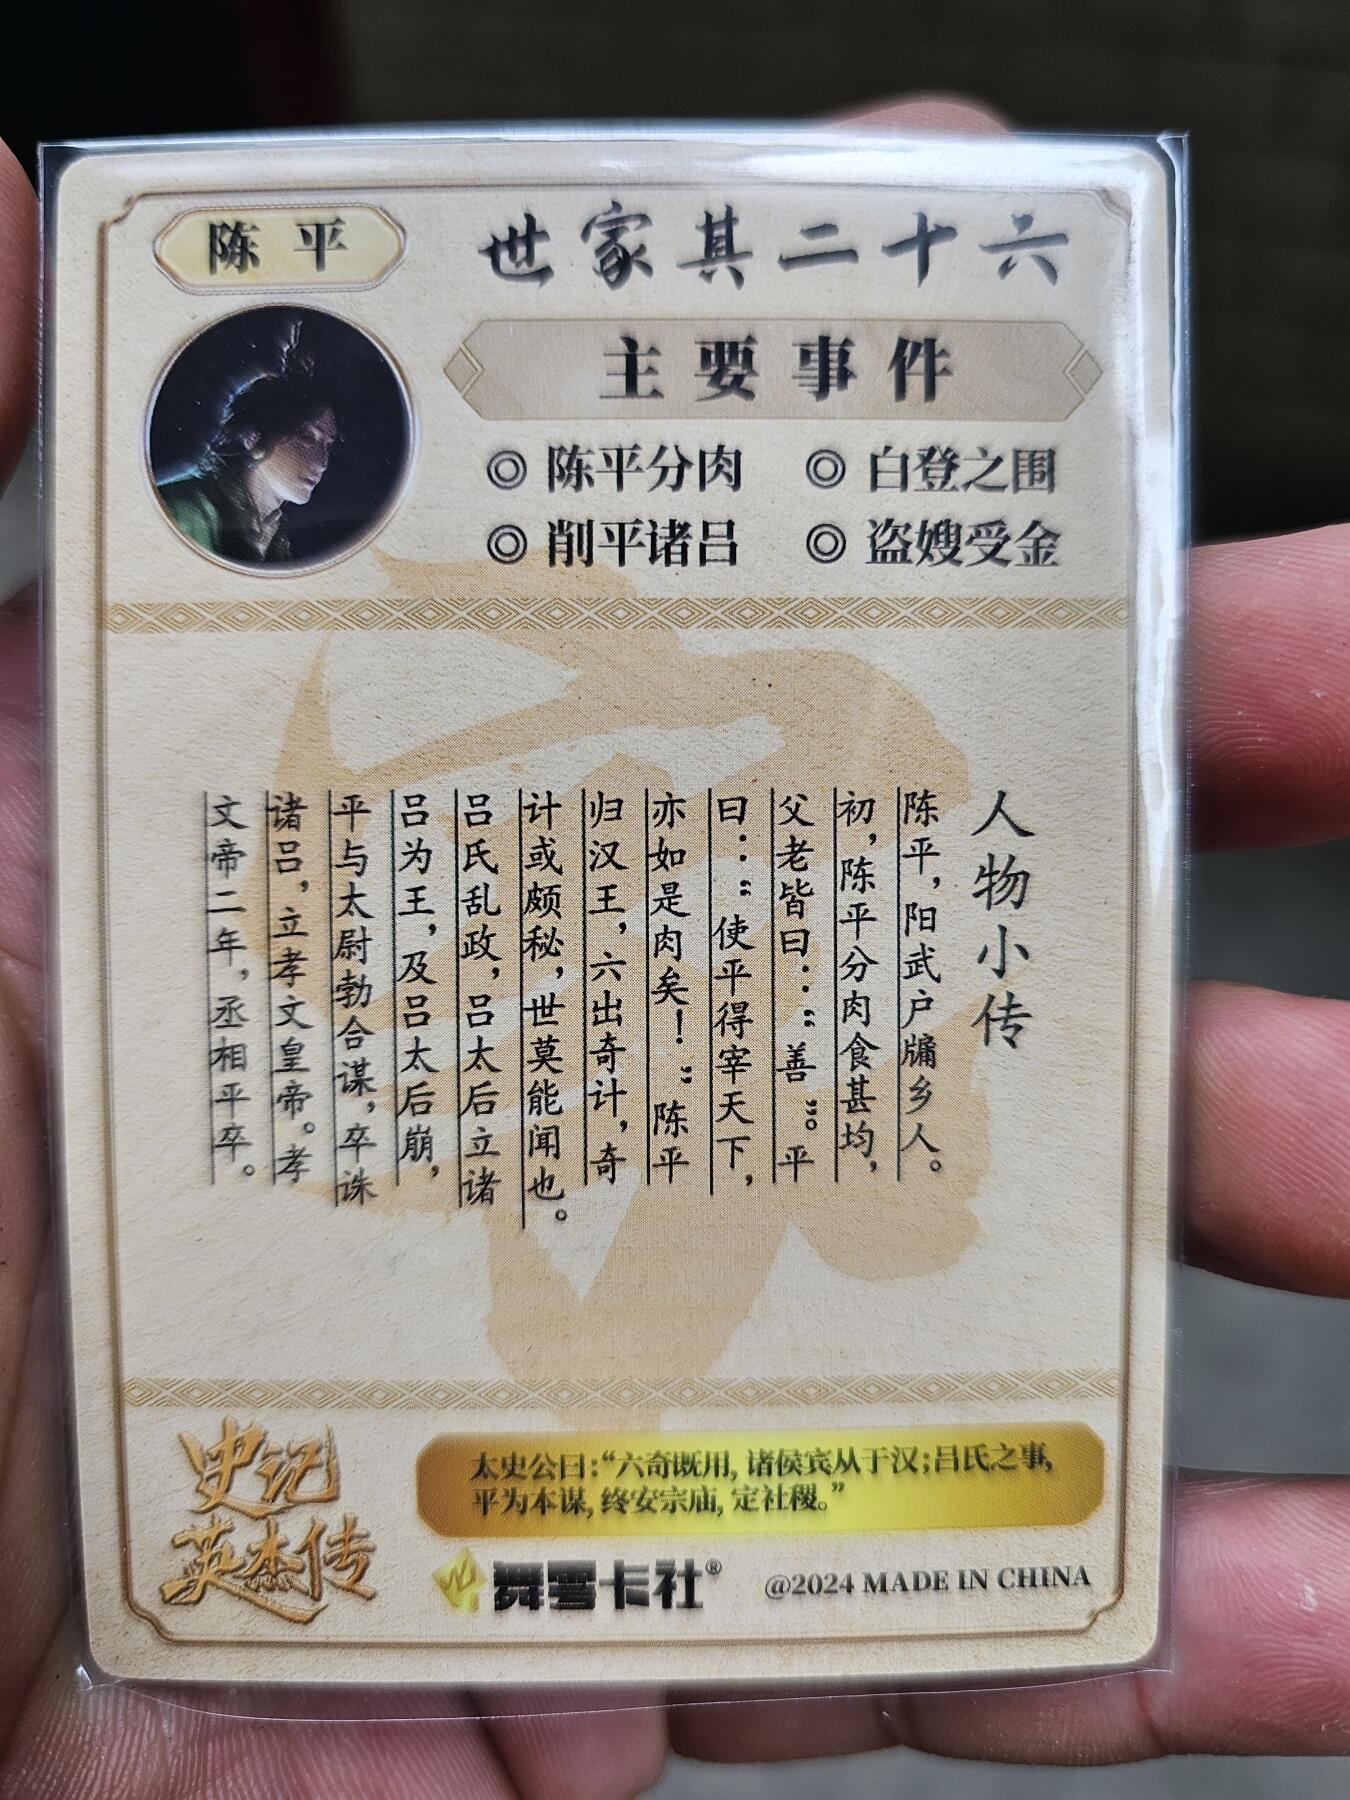 陈平
世家其二十六
主要事件
◎ 陈平分肉 ◎ 白登之围
◎ 削平诸吕 ◎ 盗嫂受金
人物小传
陈平，阳武户牖乡人。
初，陈平分肉食甚均，
父老皆曰：“善”。平
曰：“使平得宰天下，
亦如是肉矣！”陈平
归汉王，六出奇计，奇
计或颇秘，世莫能闻也。
吕氏乱政，吕太后立诸
吕为王，及吕太后崩，
平与太尉勃合谋，卒诛
诸吕，立孝文皇帝。孝
文帝二年，丞相平卒。
史记
英杰传
太史公曰：“六奇既用，诸侯宾从于汉；吕氏之事，
平为本谋，终安宗庙，定社稷。”
舞雩卡社®
@2024 MADE IN CHINA